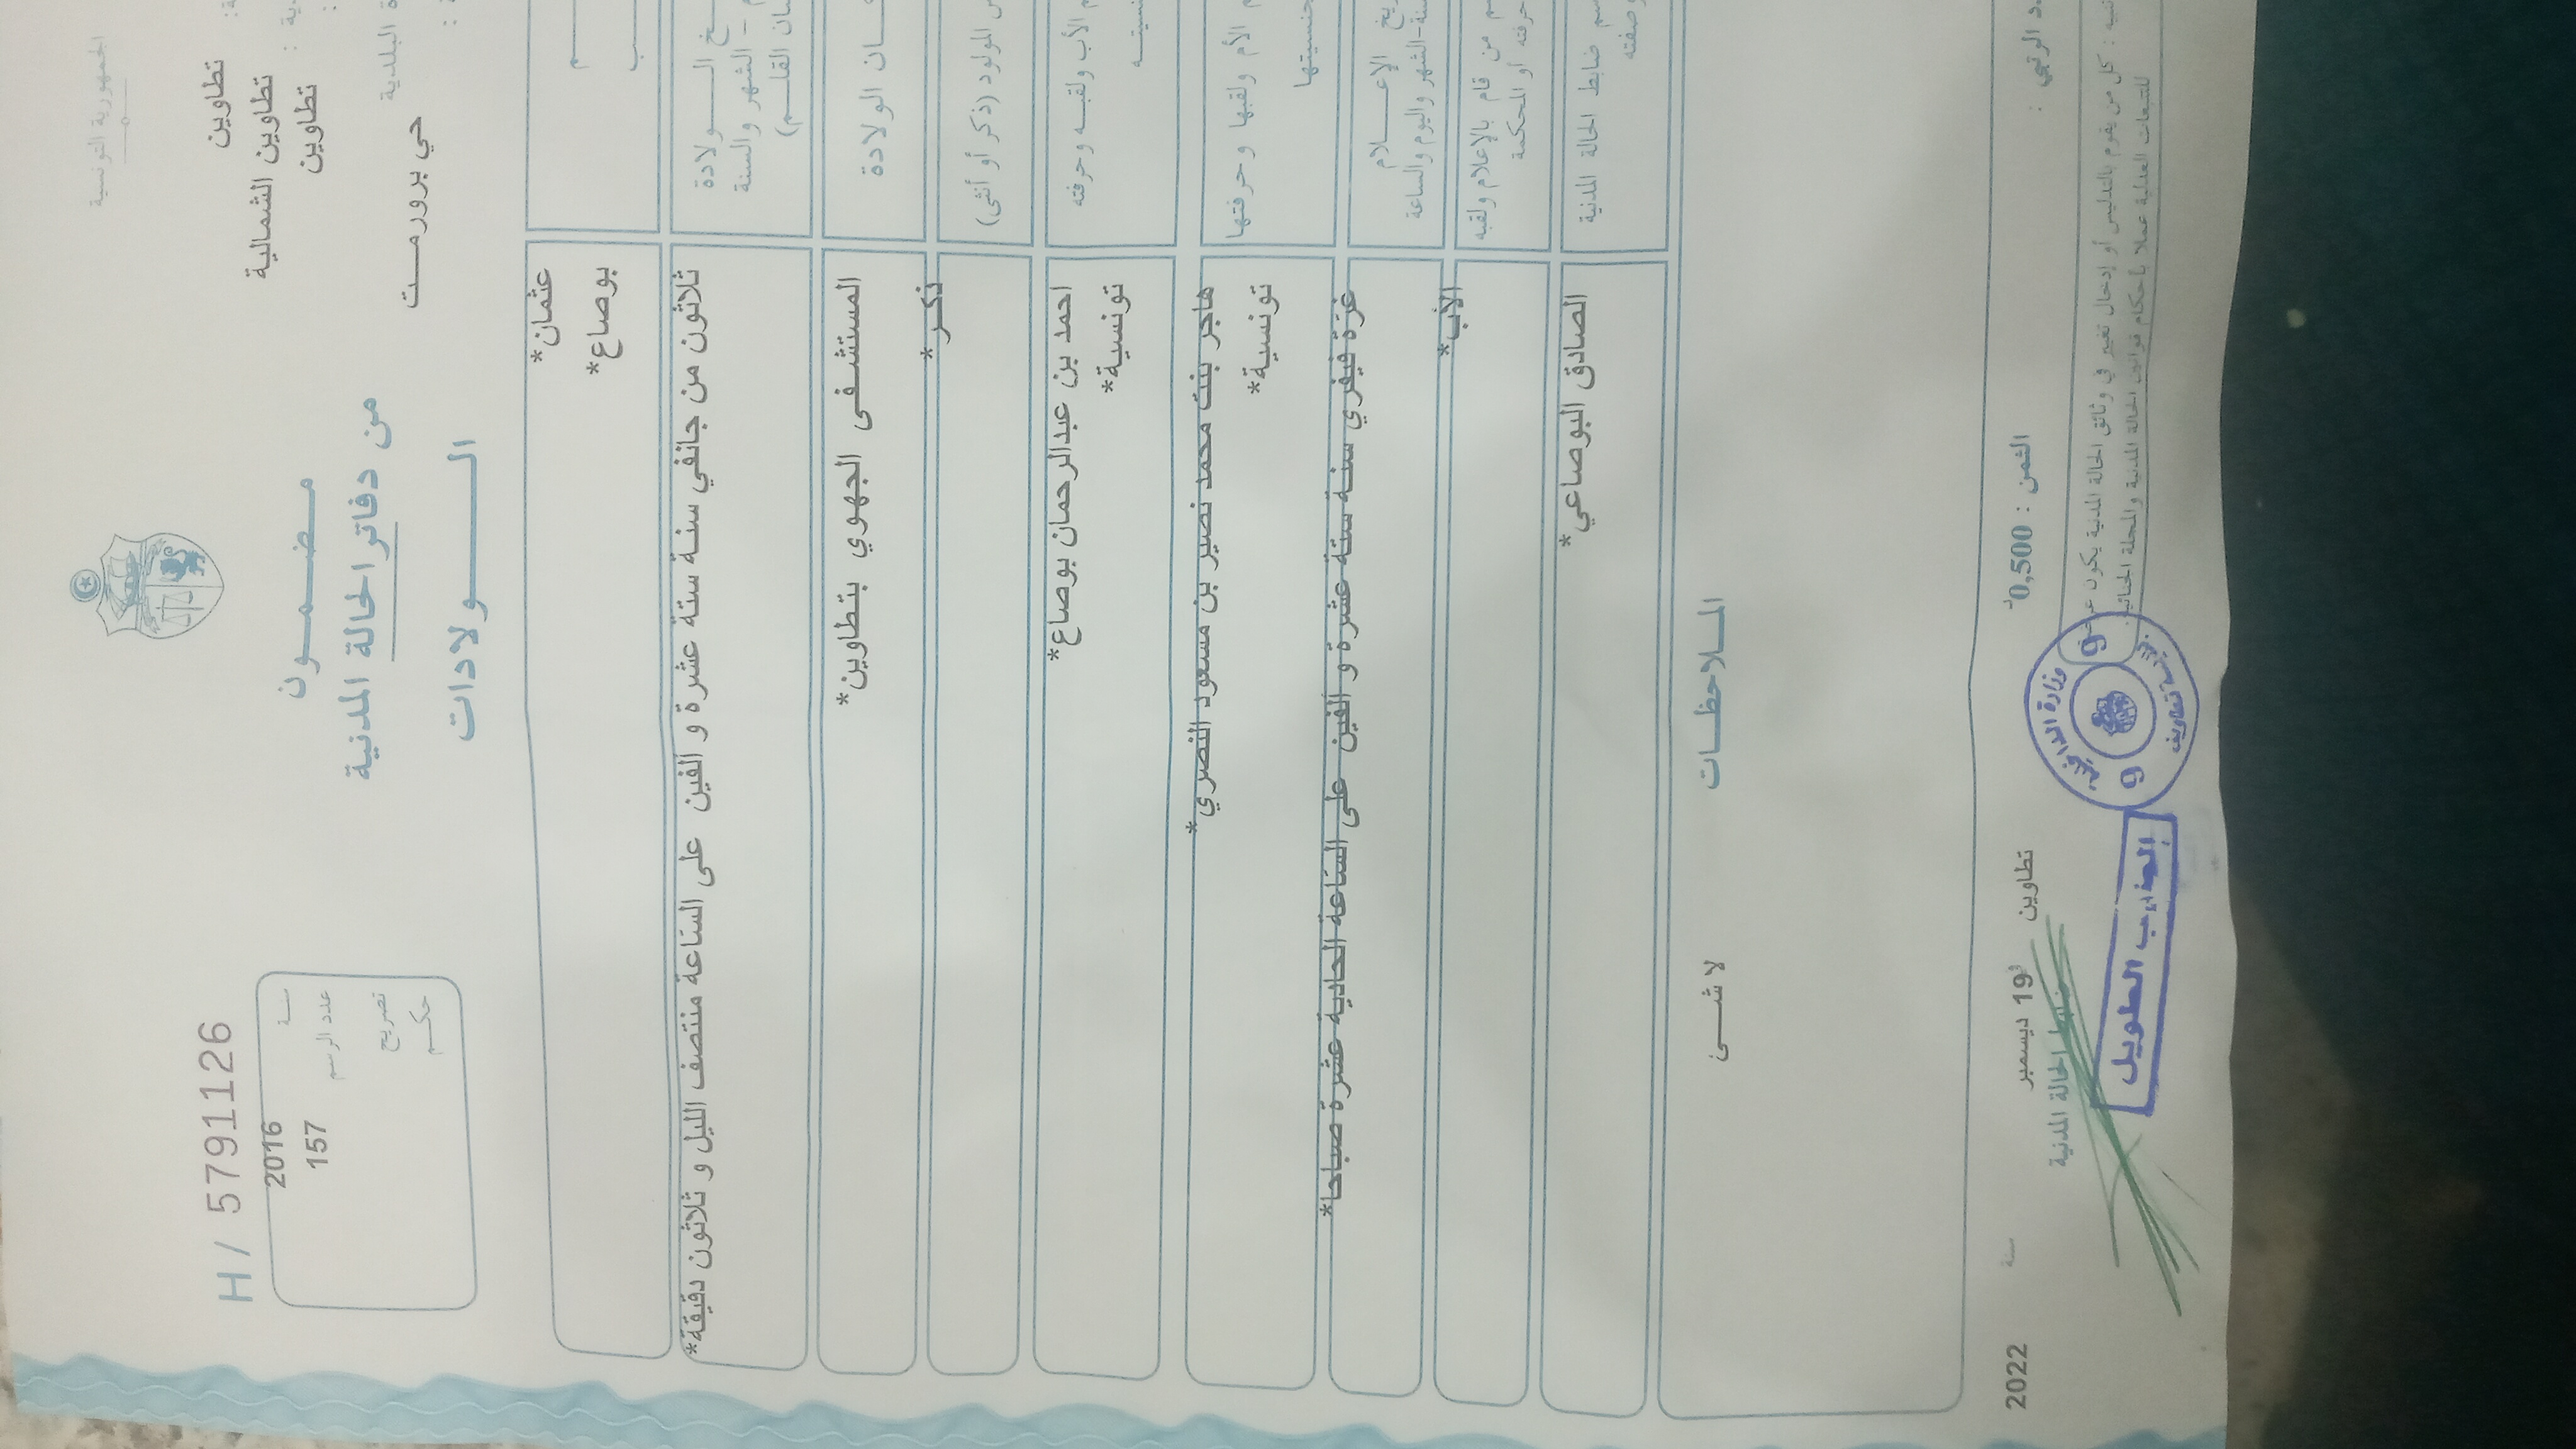 الجمهورية التونسية
تطاوين
تطاوين الشمالية
تطاوين
البلدية
حي برورمت
مضمون
من دفاتر الحالة المدنية
الولادات
H / 5791126
سنة 2016
عدد الرسم 157
تصريح
حكم
عثمان*
بوصاع*
الولادة
الشهر والسنة
ثلاثون من جانفي سنة ستة عشرة و الفين على الساعة منتصف الليل و ثلاثون دقيقة*
الولادة
المستشفى الجهوي بتطاوين*
المولود (ذكر أو أنثى)
ذكر*
الأب ولقبه وحرفته
احمد بن عبدالرحمان بوصاع*
تونسية*
الأم ولقبها وحرفتها
هاجر بنت محمد نصير بن مسعود النصري*
جنسيتها
تونسية*
الإعلام
السنة-الشهر واليوم والساعة
غرة فيفري سنة ستة عشرة و الفين على الساعة الحادية عشرة صباحا*
من قام بالإعلام ولقبه
حرفته أو المحكمة
الأب*
ضابط الحالة المدنية
وصفته
الصادق البوصاعي*
الملاحظات
لا شئ
الرتبي :
الثمن : 0,500د
تطاوين 19 ديسمبر سنة 2022
ضابط الحالة المدنية
كل من يقوم بالتدليس أو إدخال تغيير في وثائق الحالة المدنية يكون
للتتبعات العدلية عملا بأحكام قوانين الحالة المدنية والمجلة الجنائية
وزارة الداخلية
9
9
بلدية تطاوين
الطويل